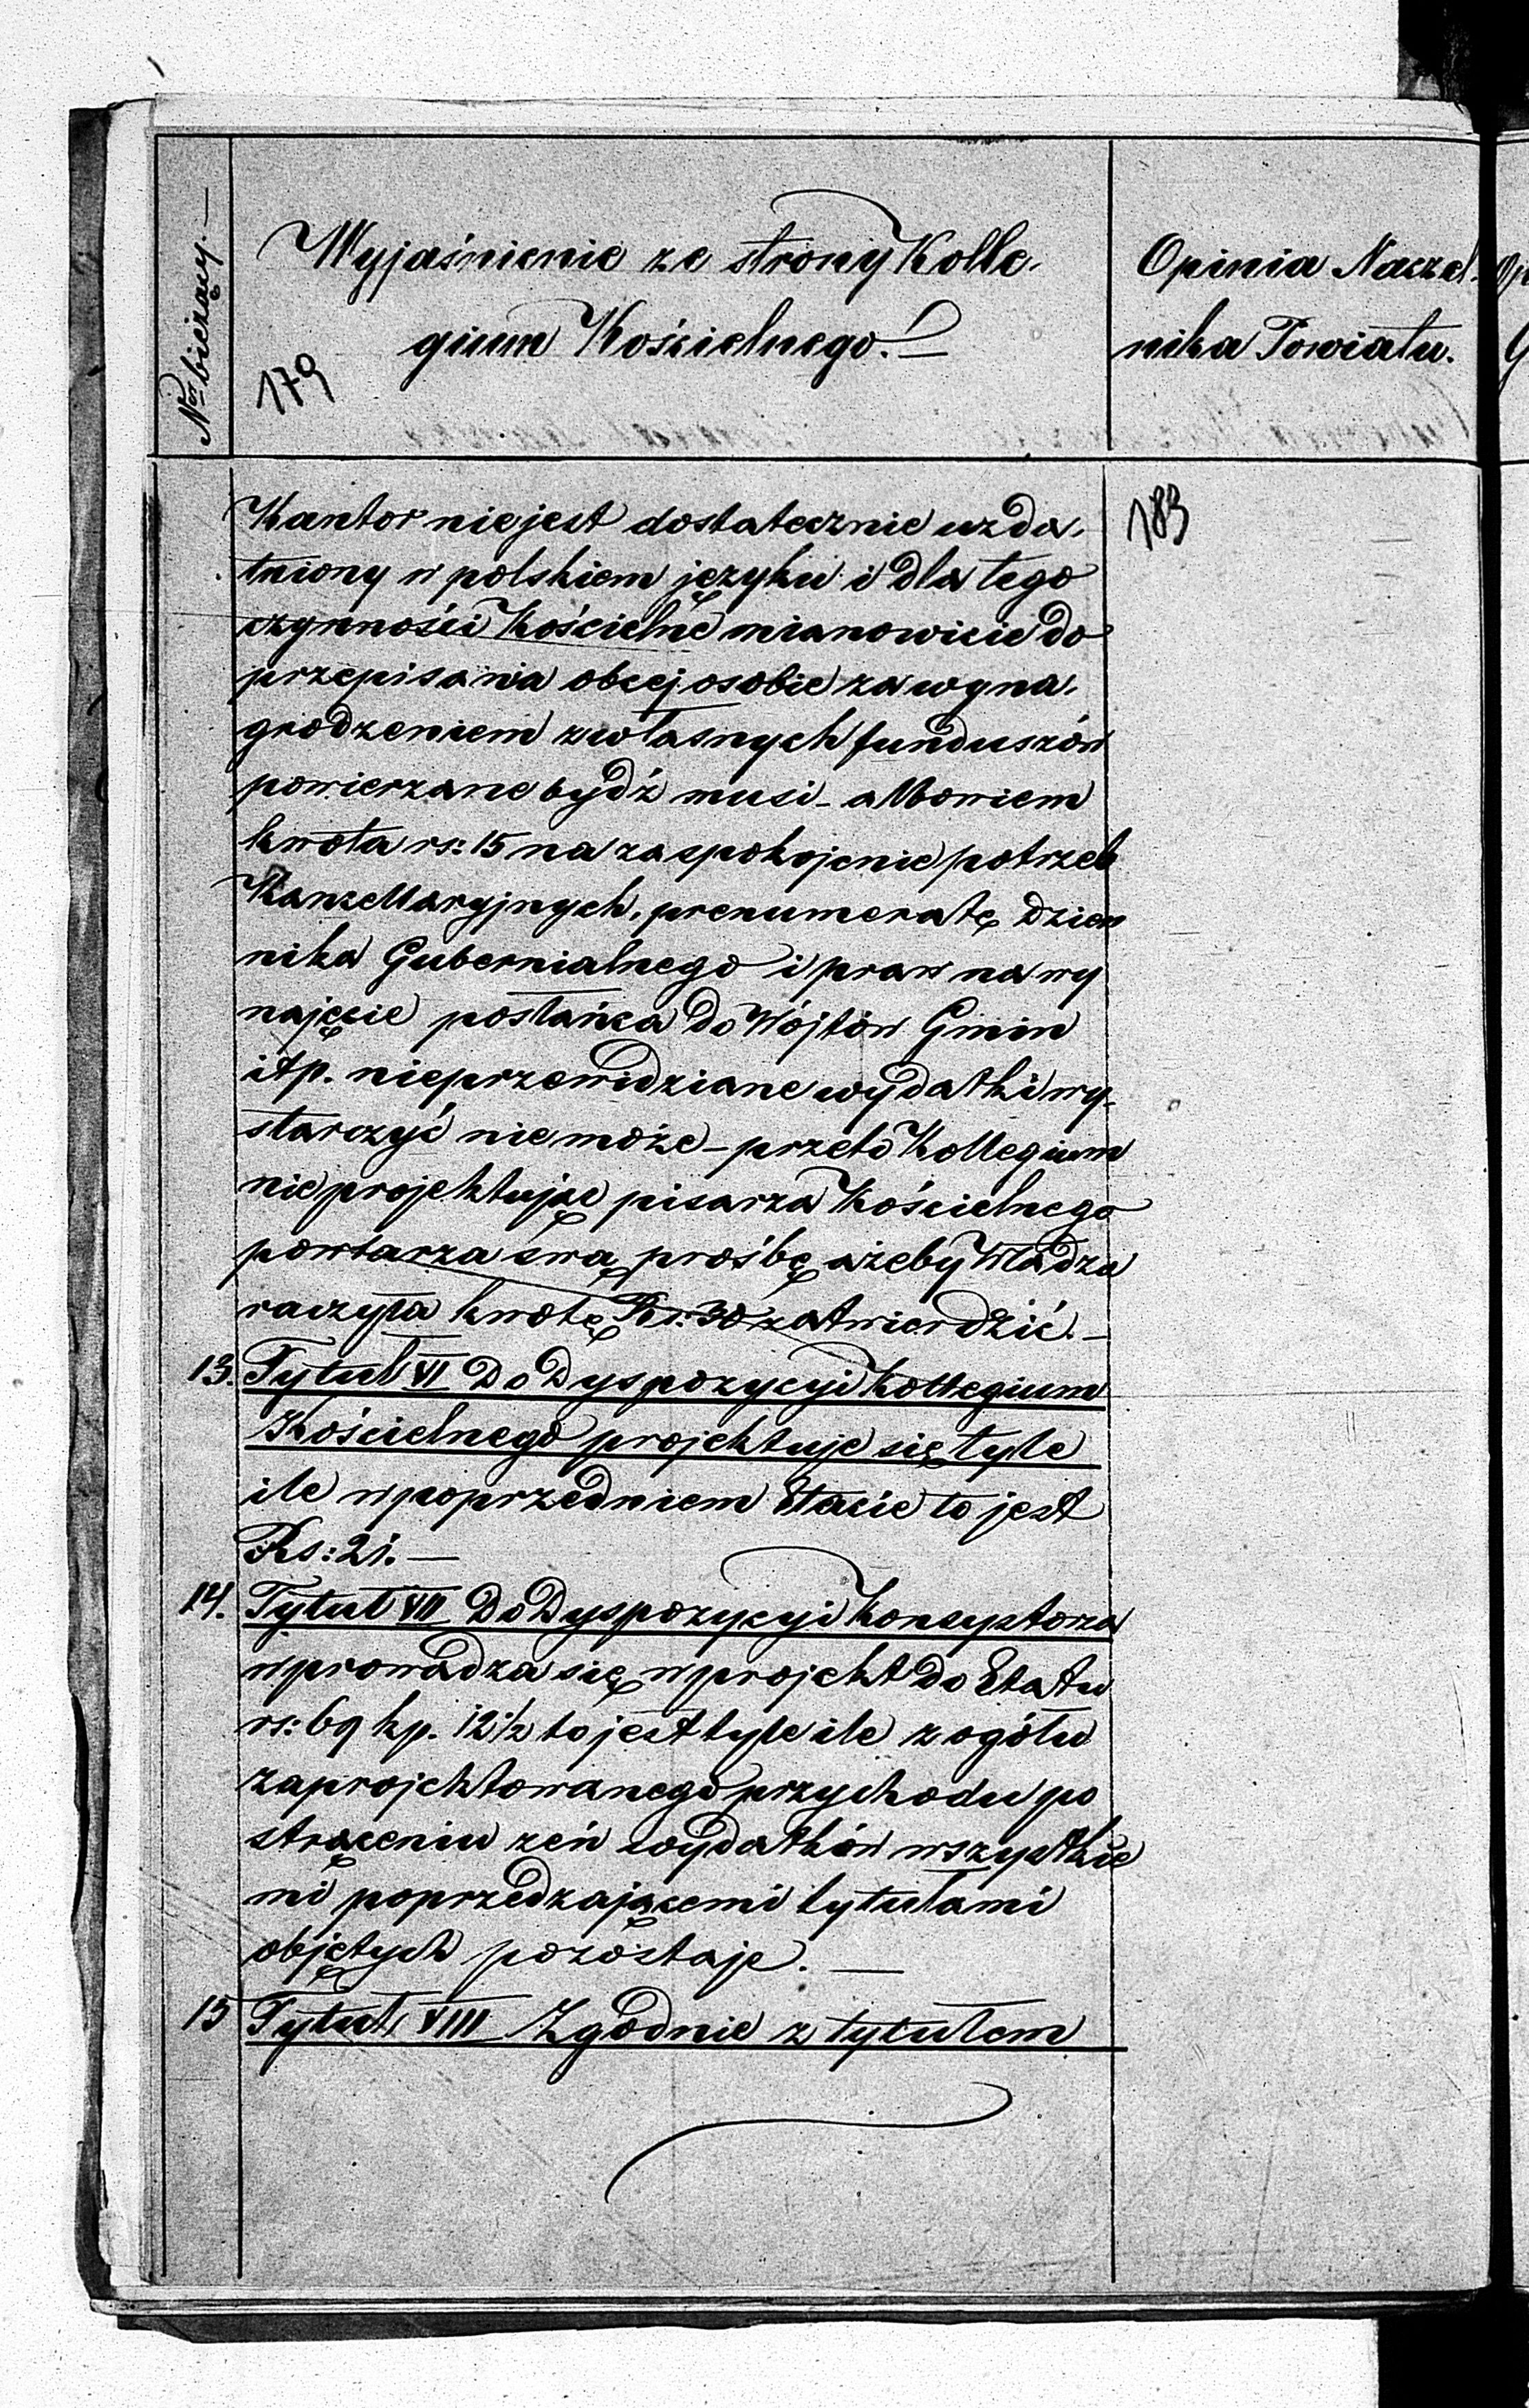 Nor bieżący.—
Wyjaśnienie ze strony Kolle-
gium Kościelnego.—
179
Opinia Naczel-
nika Powiatu.
183
Kantor nie jest dostatecznie uzda-
tniony w polskiem języku i dla tego
czynności Kościelne mianowicie do
przepisania obcej osobie za wyna-
grodzeniem z własnych funduszów
powierzane bydź musi – albowiem
kwota rs: 15 na zaspokojenie potrzeb
Kancellaryjnych, prenumeratę Dzien
nika Gubernialnego i praw na wy
najęcie posłańca do Wójtów Gmin
itp. nieprzewidziane wydatki wy-
starczyć nie może – przeto Kollegium
nie projektując pisarza Kościelnego
powtarza swą prośbę ażeby Władza
raczyła kwotę Rs: 30 zatwierdzić.—
13. Tytuł VI Do Dyspozycyi Kollegium
Kościelnego projektuje się tyle
ile w poprzedniem Etacie to jest
Rs: 21.—
14. Tytuł VII Do Dyspozycyi Konsystorza
wprowadza się w projekt do Etatu
rs: 69 kp. 12½ to jest tyle ile z ogółu
zaprojektowanego przychodu po
strąceniu zeń wydatków wszystkie
mi poprzedzającemi tytułami
objętych pozostaje.—
15 Tytuł VIII Zgodnie z tytułem